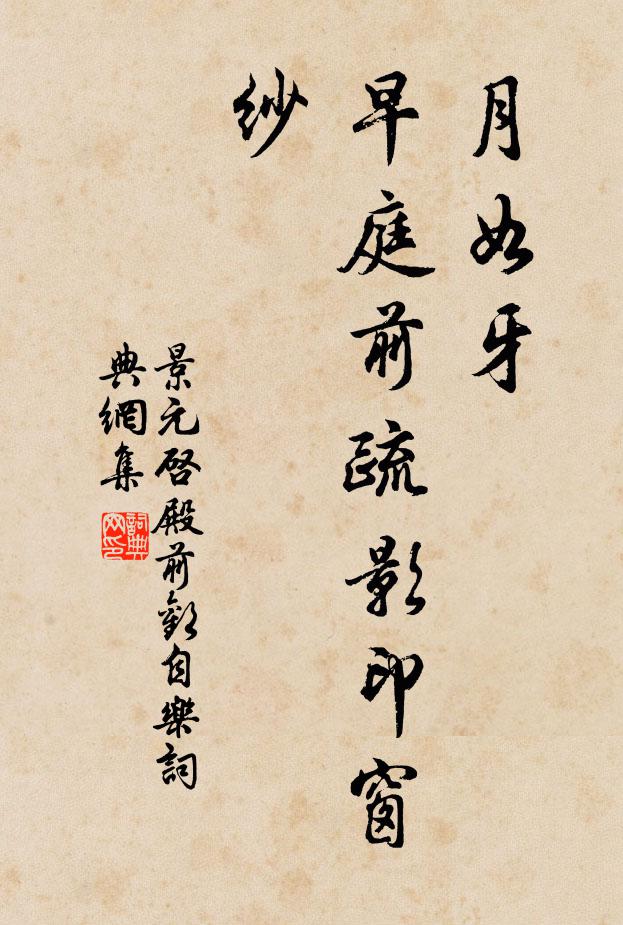 月如牙
早庭前疏影印窗
紗
景元啓殿前歡自樂詞
典網集
詞典
网印